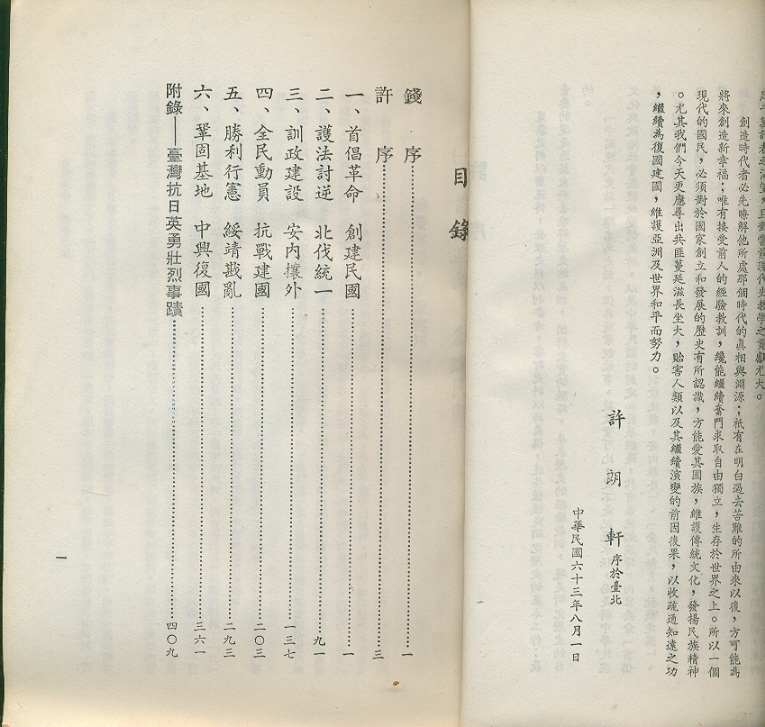 創造時代者必先瞭解他所處那個時代的眞相與淵源；祇有在明白過去苦難的所由來以後，方可能為
將來創造新幸福；唯有接受前人的經驗教訓，纔能繼續奮鬥求取自由獨立，生存於世界之上。所以一個
現代的國民，必須對於國家創立和發展的歷史有所認識，方能愛其國族，維護傳統文化，發揚民族精神
。尤其我們今天更應尋出共匪蔓延滋長坐大，貽害人類以及其繼續演變的前因後果，以收疏通知遠之功
，繼續為復國建國，維護亞洲及世界和平而努力。
許朗軒 序於臺北
中華民國六十三年八月一日
目錄
錢　序……一
許　序……三
一、首倡革命　創建民國……一
二、護法討逆　北伐統一……九一
三、訓政建設　安內攘外……一三七
四、全民動員　抗戰建國……二〇三
五、勝利行憲　綏靖戡亂……二九三
六、鞏固基地　中興復國……三六一
附錄——臺灣抗日英勇壯烈事蹟……四〇九
一